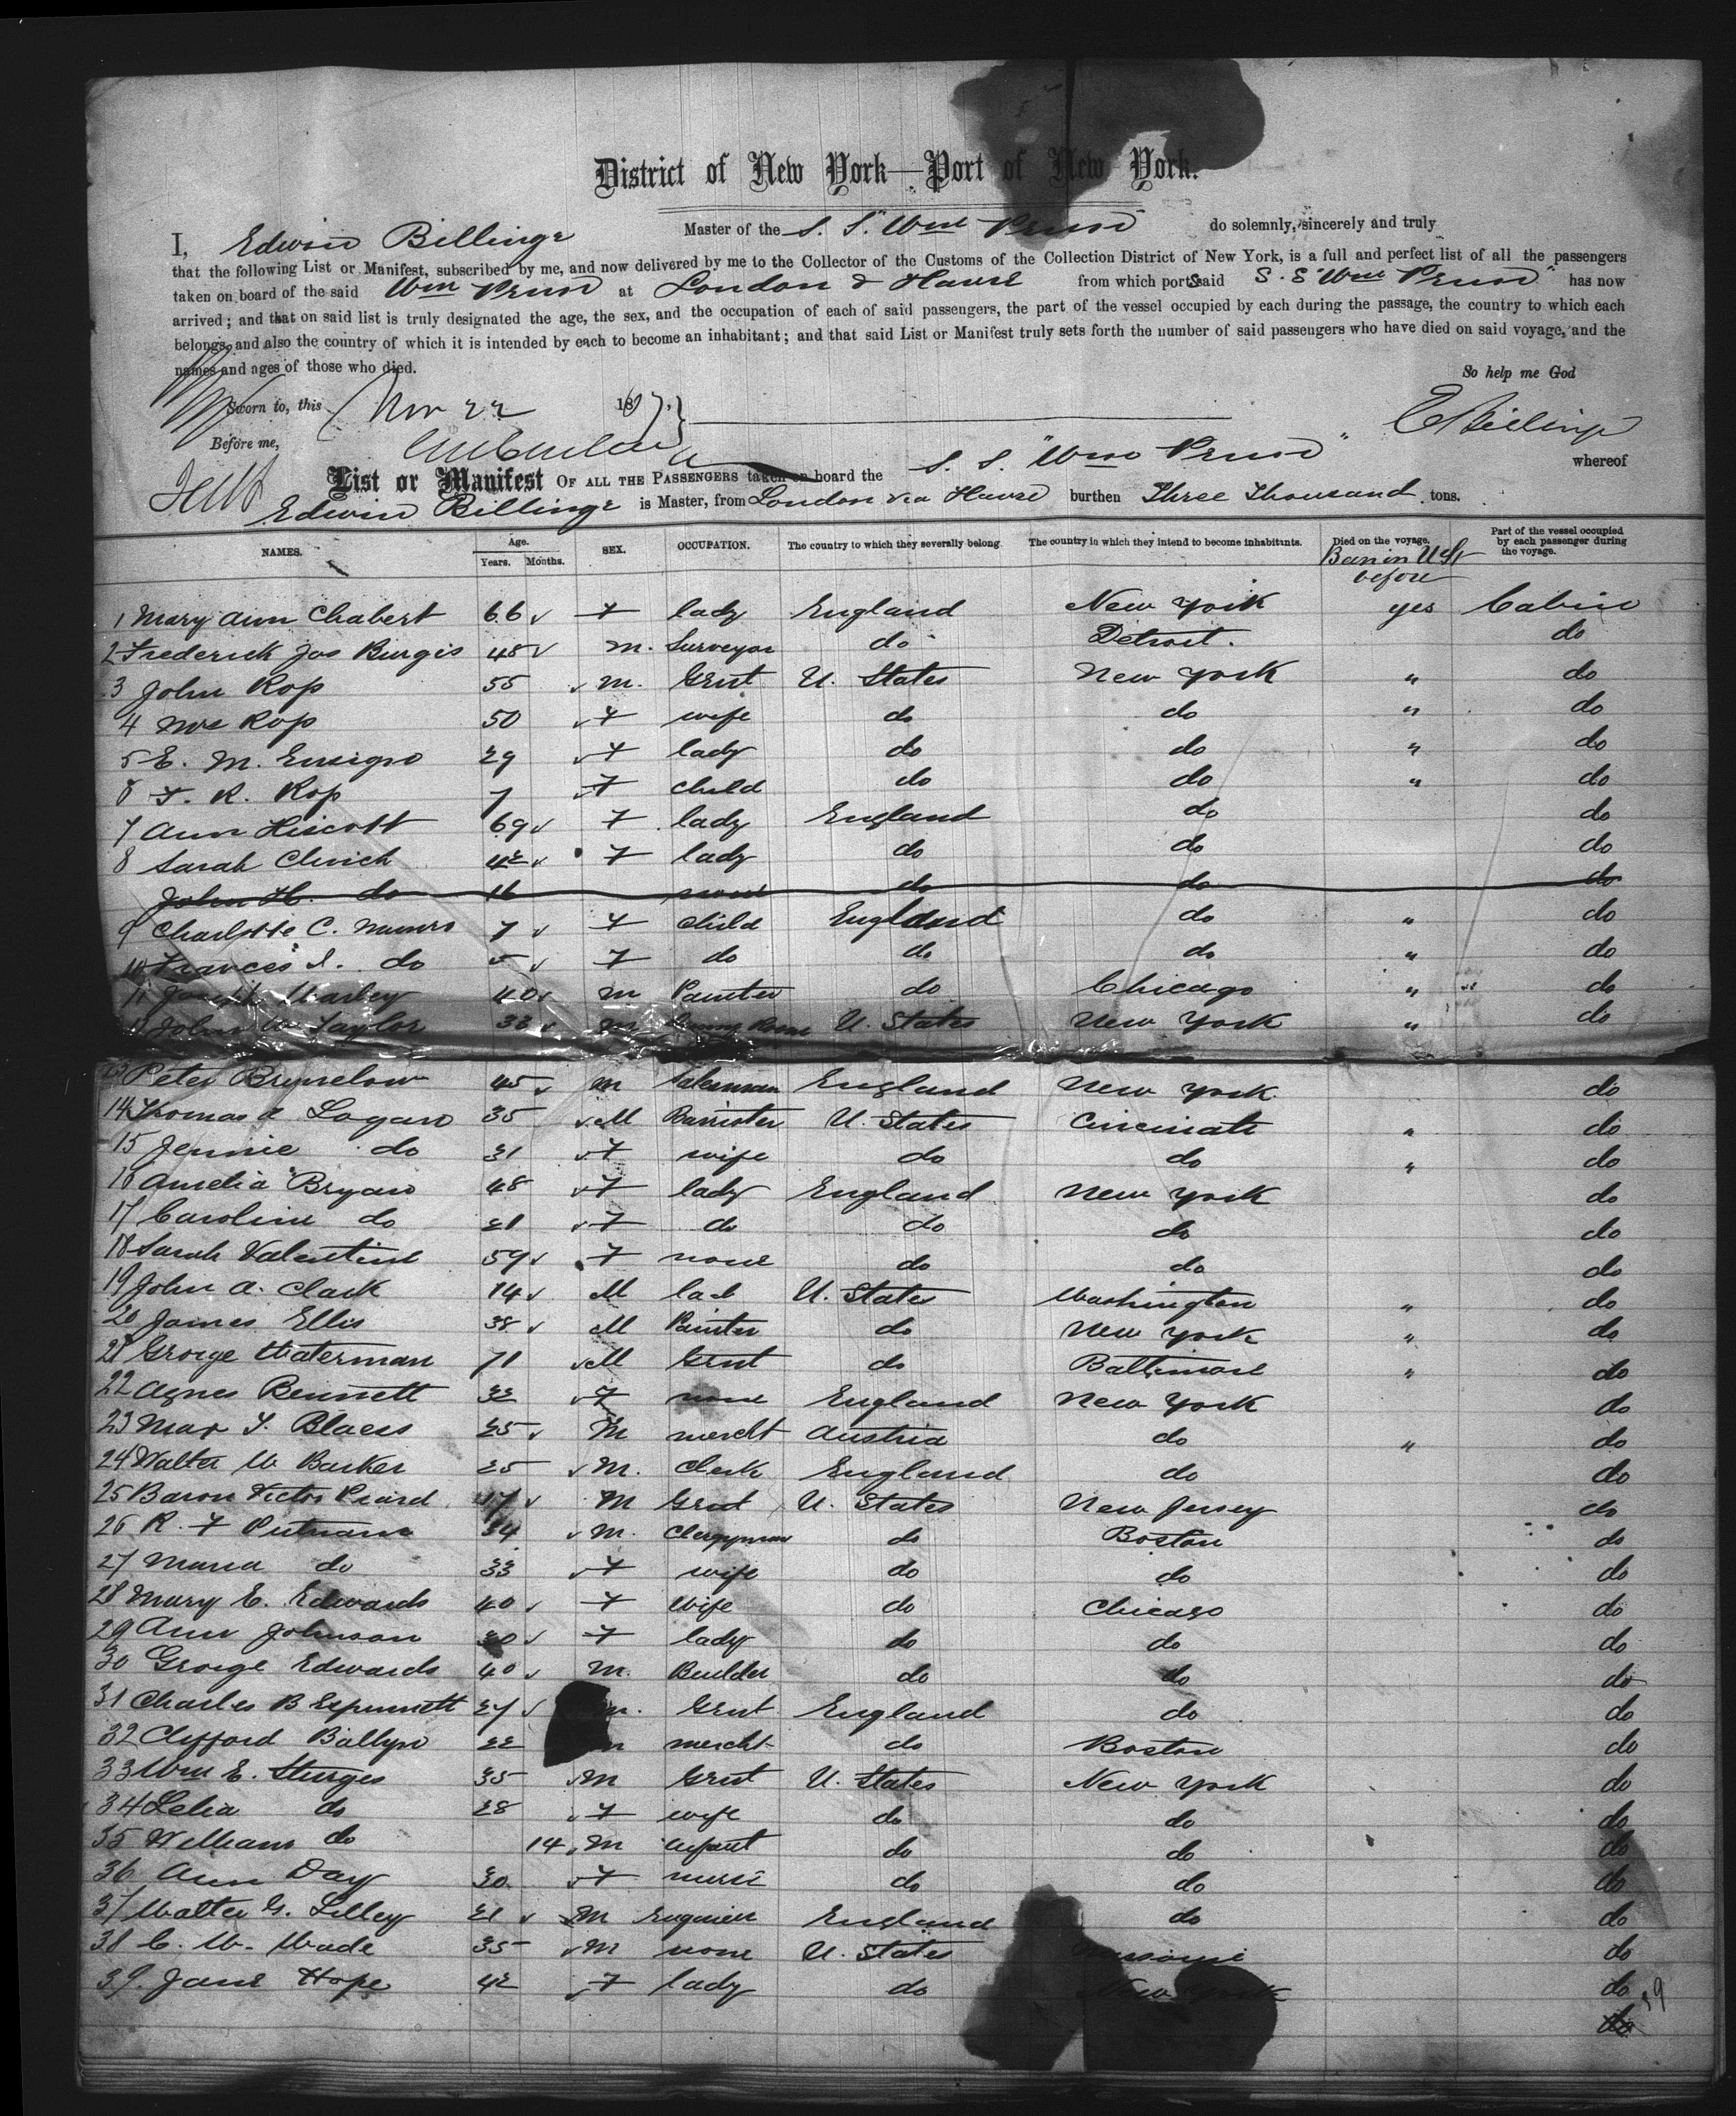 District of New York—Port of New York.
I, Edwin Billinge Master of the S. S. "Wm Penn" do solemnly, sincerely and truly
that the following List or Manifest, subscribed by me, and now delivered by me to the Collector of the Customs of the Collection District of New York, is a full and perfect list of all the passengers
taken on board of the said Wm Penn at London & Havre from which ports said S. S "Wm Penn" has now
arrived; and that on said list is truly designated the age, the sex, and the occupation of each of said passengers, the part of the vessel occupied by each during the passage, the country to which each
belongs, and also the country of which it is intended by each to become an inhabitant; and that said List or Manifest truly sets forth the number of said passengers who have died on said voyage, and the
names and ages of those who died.
So help me God
Sworn to, this Nov 22 18
E Billinge
Before me,
List or Manifest OF ALL THE PASSENGERS taken on board the S. S. "Wm Penn" whereof
Edwin Billinge is Master, from London via Havre burthen Three Thousand tons.
NAMES. Age. Years. Months. SEX. OCCUPATION. The country to which they severally belong. The country in which they intend to become inhabitants. Died on the voyage. Part of the vessel occupied by each passenger during the voyage.
Been in U St before
1 Mary Ann Chabert 66 F lady England New York yes Cabin
2 Frederick Jos Burgis 48 M. Surveyor do Detroit. do
3 John Rop 55 M. Gent U. States New York " do
4 Mrs Rop 50 F wife do do " do
5 E. M. Ensign 29 F lady do do " do
6 F. R. Rop 7 F child do do " do
7 Ann Hiscott 69 F lady England do do
8 Sarah Clinch 42 F lady do do do
John H. do 16 none do do do
9 Charlotte C. Munro 7 F child England do " do
10 Frances I. do 5 F do do do " do
11 Joseph Marley 40 M Painter do Chicago " do
12 John W Taylor 33 M U. States New York " do
13 Peter Brimelow 45 M Salesman England New York do
14 Thomas A Logan 35 M Barrister U. States Cincinati " do
15 Jennie do 31 F wife do do " do
16 Amelia Bryan 48 F lady England New York do
17 Caroline do 21 F do do do do
18 Sarah Valentine 59 F none do do do
19 John A. Clark 14 M lad U. States Washington " do
20 James Ellis 38 M Painter do New York " do
21 George Waterman 71 M Gent do Baltimore " do
22 Agnes Bennett 32 F none England New York do
23 Max J. Blaess 25 M mercht Austria do " do
24 Walter W Barker 25 M. Clerk England do do
25 Baron Victor Piard 47 M Gent U. States New Jersey do
26 R. F Putnam 34 M. Clergyman do Boston do
27 Maria do 33 F wife do do do
28 Mary E. Edwards 40 F Wife do Chicago do
29 Ann Johnson 30 F lady do do do
30 George Edwards 40 M. Builder do do do
31 Charles B 27 m. Gent England do do
32 Clifford Ballyn 22 m mercht do Boston do
33 Wm E. Sturges 35 M Gent U. States New York do
34 Lelia do 28 F wife do do do
35 William do 14 M infant do do do
36 Ann Day 30 F nurse do do do
37 Walter G. Lilley 21 M Engineer England do do
38 C. W. Wade 35 M none U. States Missouri do
39. Jane Hope 42 F lady do New York do
39